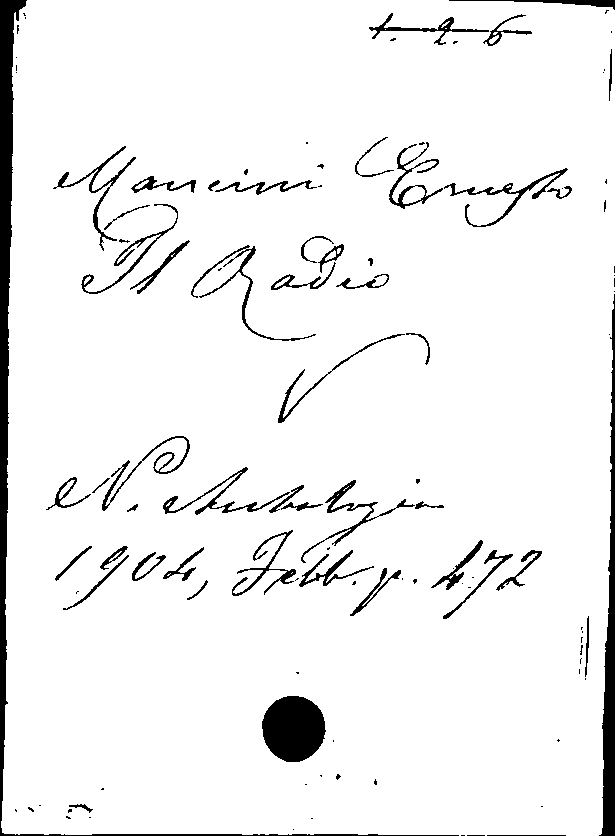 1. 2. 6
Mancini Ernesto
Il Radio
V
N. Antologia
1904, Febb. p. 472